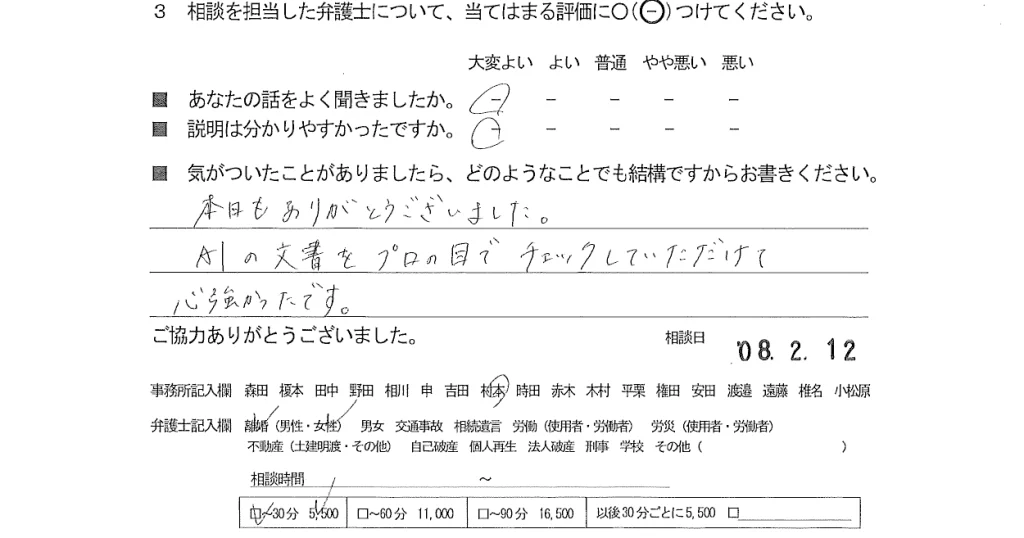 3 相談を担当した弁護士について、当てはまる評価に○(⊖)つけてください。
大変よい よい 普通 やや悪い 悪い
■ あなたの話をよく聞きましたか。 － － － － －
■ 説明は分かりやすかったですか。 － － － － －
■ 気がついたことがありましたら、どのようなことでも結構ですからお書きください。
本日もありがとうございました。
AIの文書をプロの目でチェックしていただけて
心強かったです。
ご協力ありがとうございました。 相談日 '08. 2. 12
事務所記入欄 森田 榎本 田中 野田 相川 申 吉田 村本 時田 赤木 木村 平栗 権田 安田 渡邉 遠藤 椎名 小松原
弁護士記入欄 離婚（男性・女性） 男女 交通事故 相続遺言 労働（使用者・労働者） 労災（使用者・労働者）
不動産（土建明渡・その他） 自己破産 個人再生 法人破産 刑事 学校 その他（ ）
相談時間 ～
□～30分 5,500 □～60分 11,000 □～90分 16,500 以後30分ごとに5,500 □